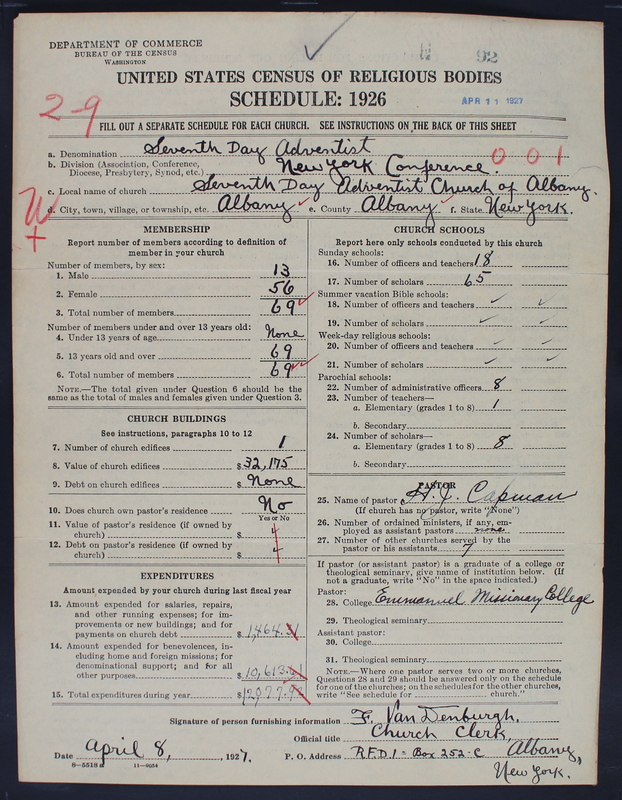 DEPARTMENT OF COMMERCE
BUREAU OF THE CENSUS
WASHINGTON
92
UNITED STATES CENSUS OF RELIGIOUS BODIES
SCHEDULE: 1926
APR 11 1927
2-9
FILL OUT A SEPARATE SCHEDULE FOR EACH CHURCH. SEE INSTRUCTIONS ON THE BACK OF THIS SHEET
a. Denomination Seventh Day Adventist
b. Division (Association, Conference, Diocese, Presbytery, Synod, etc.) New York Conference. 0 0 1
c. Local name of church Seventh Day Adventist Church of Albany.
d. City, town, village, or township, etc. Albany e. County Albany f. State New York.
W
+
MEMBERSHIP
Report number of members according to definition of
member in your church
Number of members, by sex:
1. Male 13
2. Female 56
3. Total number of members 69
Number of members under and over 13 years old:
4. Under 13 years of age None
5. 13 years old and over 69
6. Total number of members 69
NOTE.—The total given under Question 6 should be the
same as the total of males and females given under Question 3.
CHURCH BUILDINGS
See instructions, paragraphs 10 to 12
7. Number of church edifices 1
8. Value of church edifices $32,175
9. Debt on church edifices $ None
10. Does church own pastor's residence No
Yes or No
11. Value of pastor's residence (if owned by
church) $
12. Debt on pastor's residence (if owned by
church) $
EXPENDITURES
Amount expended by your church during last fiscal year
13. Amount expended for salaries, repairs,
and other running expenses; for im-
provements or new buildings; and for
payments on church debt $1,464.31
14. Amount expended for benevolences, in-
cluding home and foreign missions; for
denominational support; and for all
other purposes $10,613.
15. Total expenditures during year $
CHURCH SCHOOLS
Report here only schools conducted by this church
Sunday schools:
16. Number of officers and teachers 18
17. Number of scholars 65
Summer vacation Bible schools:
18. Number of officers and teachers
19. Number of scholars
Week-day religious schools:
20. Number of officers and teachers
21. Number of scholars
Parochial schools:
22. Number of administrative officers 8
23. Number of teachers—
a. Elementary (grades 1 to 8) 1
b. Secondary
24. Number of scholars—
a. Elementary (grades 1 to 8) 8
b. Secondary
PASTOR
25. Name of pastor H. J. Capman
(If church has no pastor, write "None")
26. Number of ordained ministers, if any, em-
ployed as assistant pastors none
27. Number of other churches served by the
pastor or his assistants 7
If pastor (or assistant pastor) is a graduate of a college or
theological seminary, give name of institution below. (If
not a graduate, write "No" in the space indicated.)
Pastor:
28. College Emmanuel Missionary College
29. Theological seminary
Assistant pastor:
30. College
31. Theological seminary
NOTE.—Where one pastor serves two or more churches,
Questions 28 and 29 should be answered only on the schedule
for one of the churches; on the schedules for the other churches,
write "See schedule for church."
Signature of person furnishing information F. Van Denburgh.
Official title Church Clerk,
Date April 8, 1927. P. O. Address R.F.D. 1 = Box 252-C Albany,
New York.
8—5518 11—9684